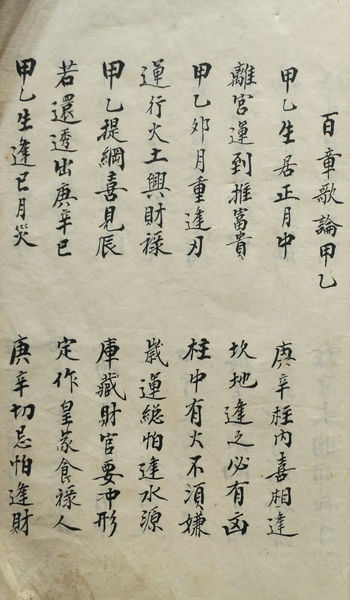 百章歌論甲乙
甲乙生居正月中 庚辛柱內喜相逢
離宮運到推富貴 坎地逢之必有凶
甲乙卯月重逢刃 柱中有火不須嫌
運行火土興財祿 歲運總怕逢水源
甲乙提綱喜見辰 庫藏財官要冲形
若還透出庚辛巳 定作皇家食祿人
甲乙生逢巳月災 庚辛切忌怕逢財